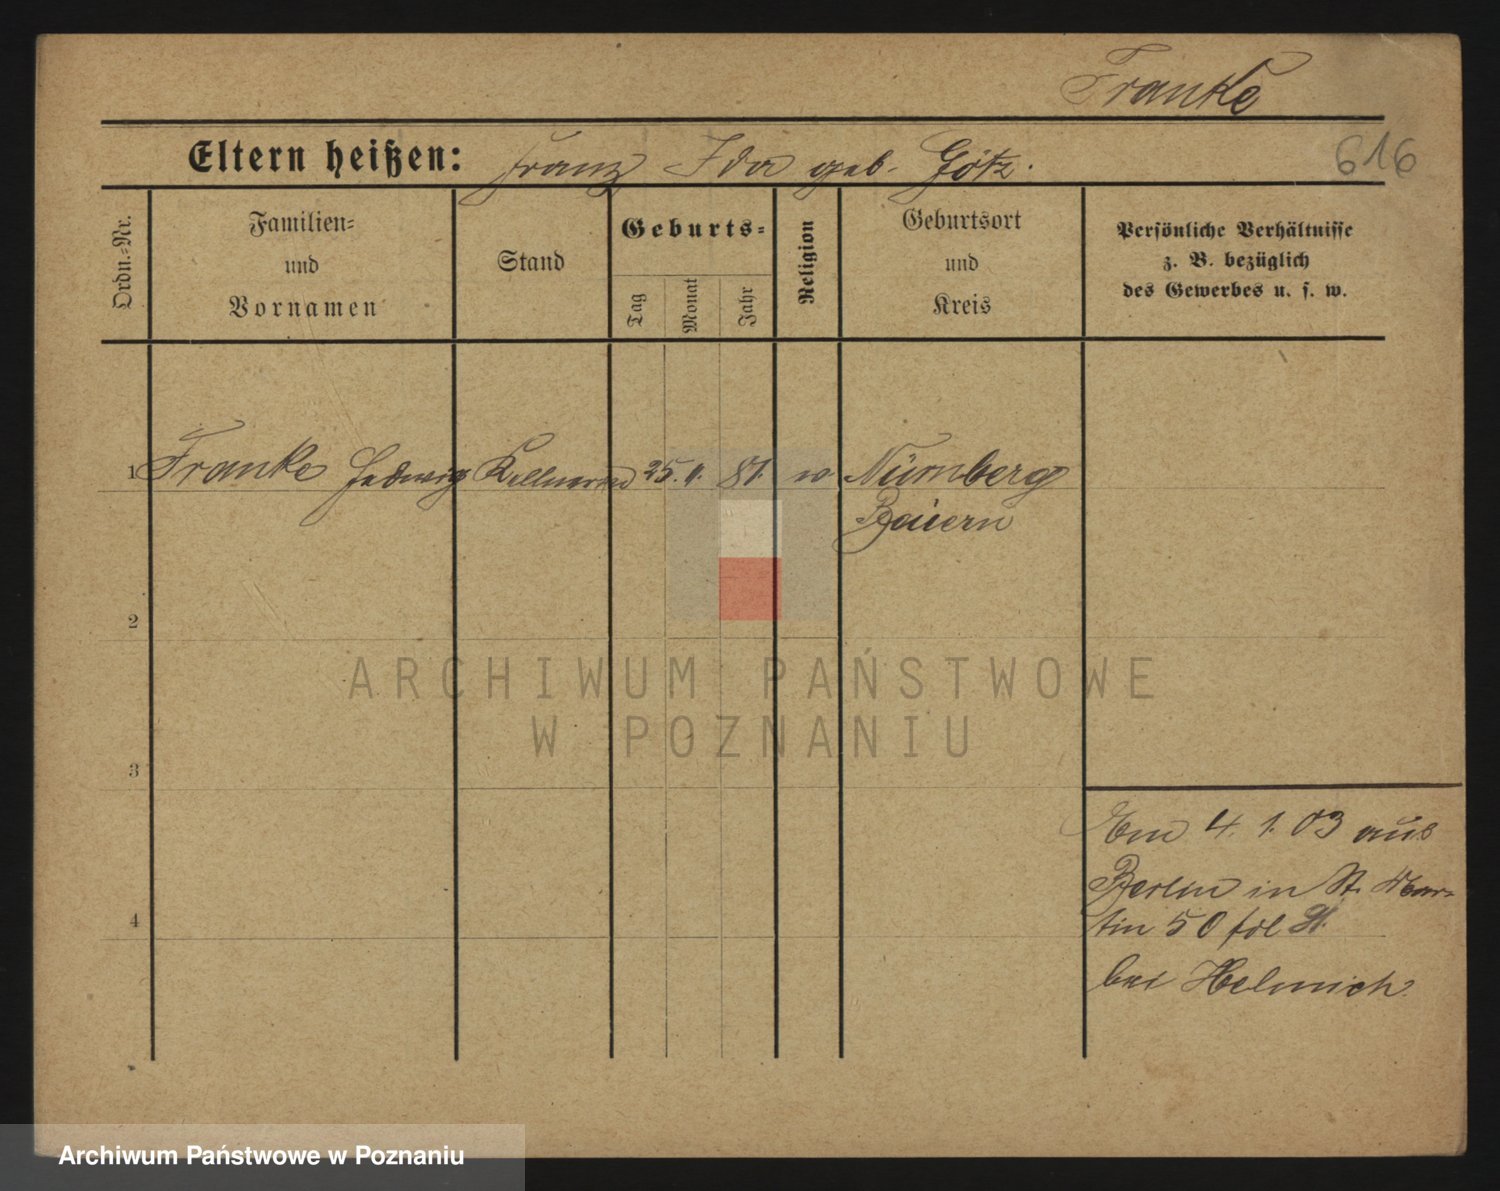 Franke
Eltern heißen: Franz Ida geb. Götz.
616
Ordn.-Nr.
Familien-
und
Vornamen
Stand
Geburts-
Tag
Monat
Jahr
Religion
Geburtsort
und
Kreis
Persönliche Verhältnisse
z. B. bezüglich
des Gewerbes u. s. w.
1 Franke Hedwig Kellnerin 25. 81. Nürnberg
Baiern
2
3
4
4. 1. 03 aus
Berlin in St. Mar-
tin 50
bei Helmich
ARCHIWUM PAŃSTWOWE
W POZNANIU
Archiwum Państwowe w Poznaniu